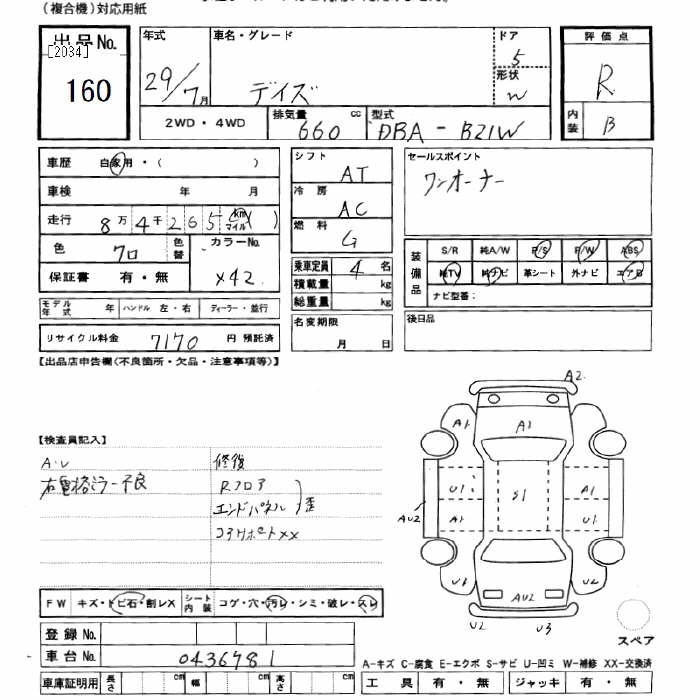 (複合機)対応用紙
出品No.
[2034]
160
年式
29/7月
車名・グレード
デイズ
ドア
5
形状
W
2WD・4WD
排気量 660 cc
型式 DBA-B21W
評価点
R
内装 B
車歴 自家用・( )
車検 年 月
走行 8万4千265 km マイル( )
色 クロ 色替
カラーNo. X42
保証書 有・無
モデル年式 年 ハンドル 左・右 ディーラー・並行
リサイクル料金 7170 円 預託済
シフト AT
冷房 AC
燃料 G
乗車定員 4 名
積載量 kg
総重量 kg
名変期限 月 日
セールスポイント
ワンオーナー
装備品
S/R 純A/W P/S P/W ABS
純TV 純ナビ 革シート 外ナビ エアB
ナビ型番:
後日品
【出品店申告欄(不良箇所・欠品・注意事項等)】
【検査員記入】
A・U
右電格ミラー不良
修復
Rフロア
エンドパネル
歪
コアサポートXX
A2
A1
A1
U1
S1
A1
AU2
A1
U1
U3
AU2
U2
U2
U3
スペア
FW キズ・トビ石・割レX
シート内装 コゲ・穴・汚レ・シミ・破レ・スレ
登録No.
車台No. 0436781
A-キズ C-腐食 E-エクボ S-サビ U-凹ミ W-補修 XX-交換済
車庫証明用 長さ cm 幅 cm 高さ cm
工具 有・無 ジャッキ 有・無